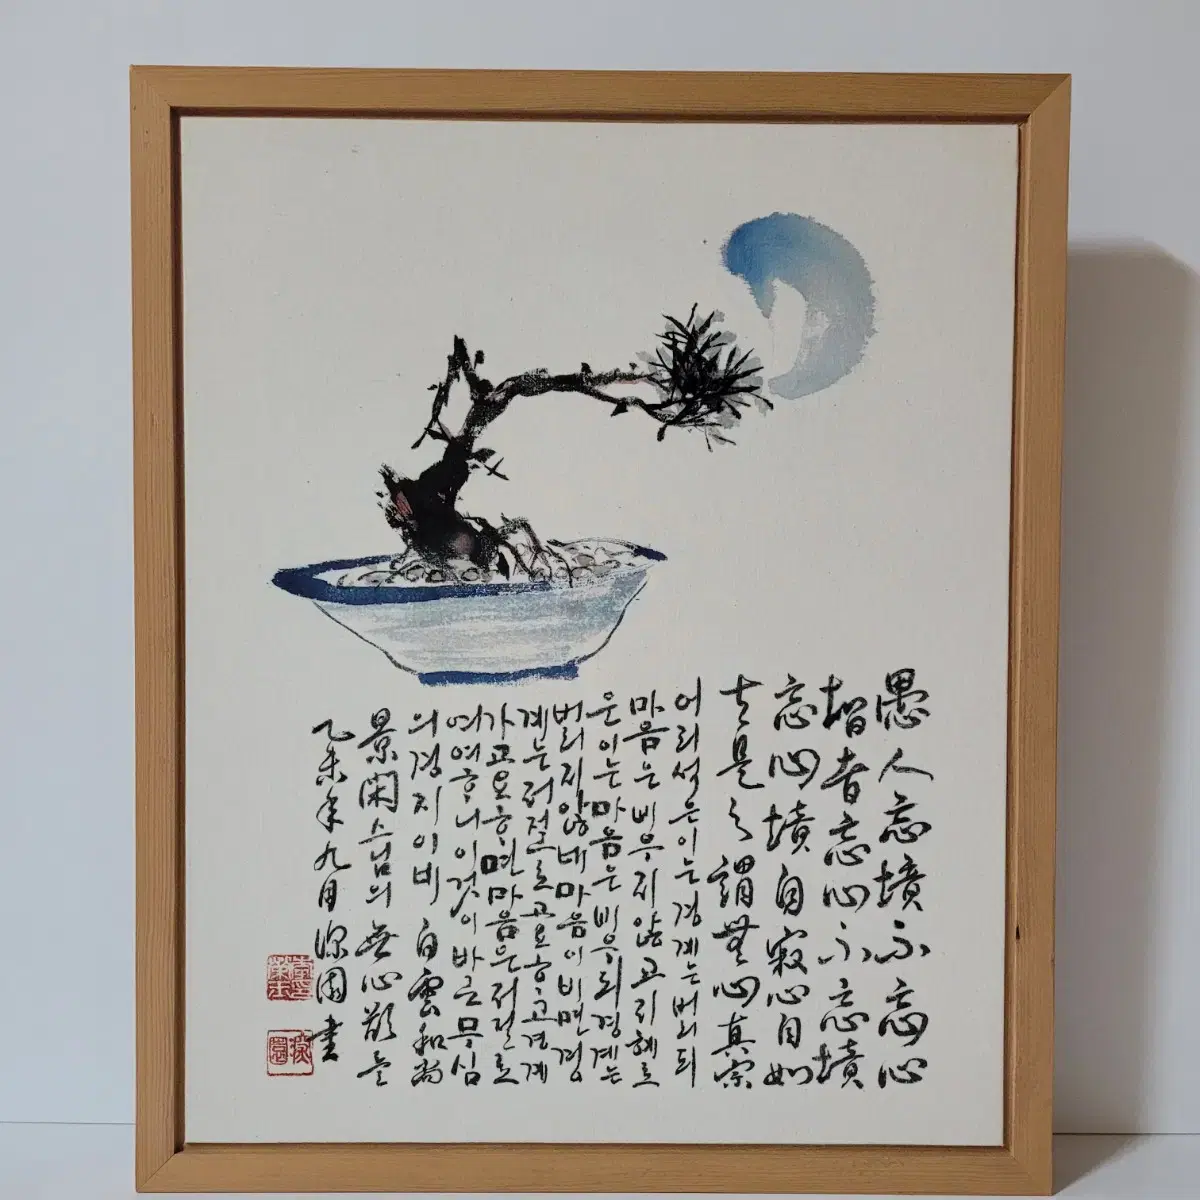 愚人忘境不忘心
智者忘心不忘境
忘心境自寂心自如
夫是之謂無心真宗
어리석은이는경계는버리되
마음은비우지않고지혜로
운이는마음은비우되경계는
버리지않네마음이비면경
계는저절로고요하고경계
가고요하면마음은저절로
여여하니이것이바른무심
의경지이 白雲和尚
景閑스님의 無心歌는
乙未年九月 園書